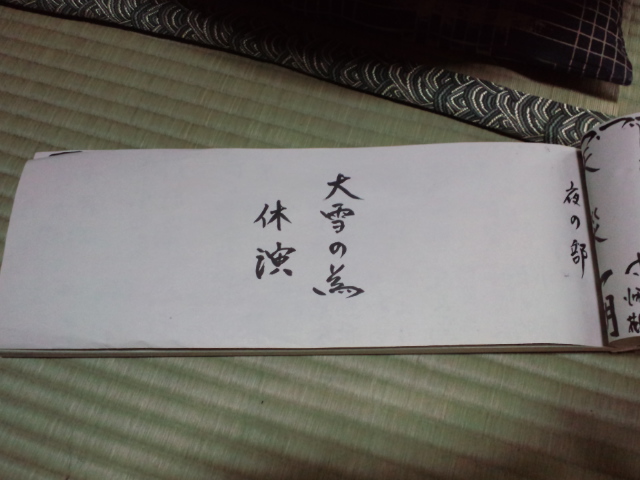 夜の部
大雪の為
休演